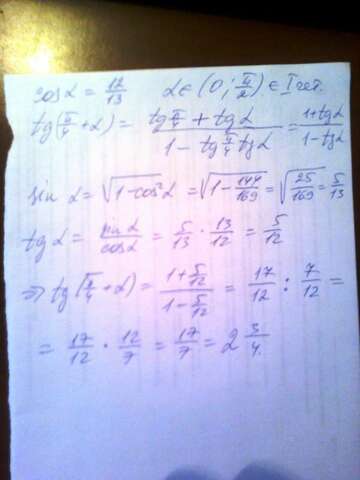 cos α = 12/13   α ∈ (0; π/2) ∈ I чет.
tg(π/4 + α) = (tg π/4 + tg α)/(1 - tg π/4 tg α) = (1 + tg α)/(1 - tg α)
sin α = √(1 - cos² α) = √(1 - 144/169) = √(25/169) = 5/13
tg α = sin α/cos α = 5/13 · 13/12 = 5/12
⇒ tg(π/4 + α) = (1 + 5/12)/(1 - 5/12) = 17/12 : 7/12 =
= 17/12 · 12/7 = 17/7 = 2 3/4.